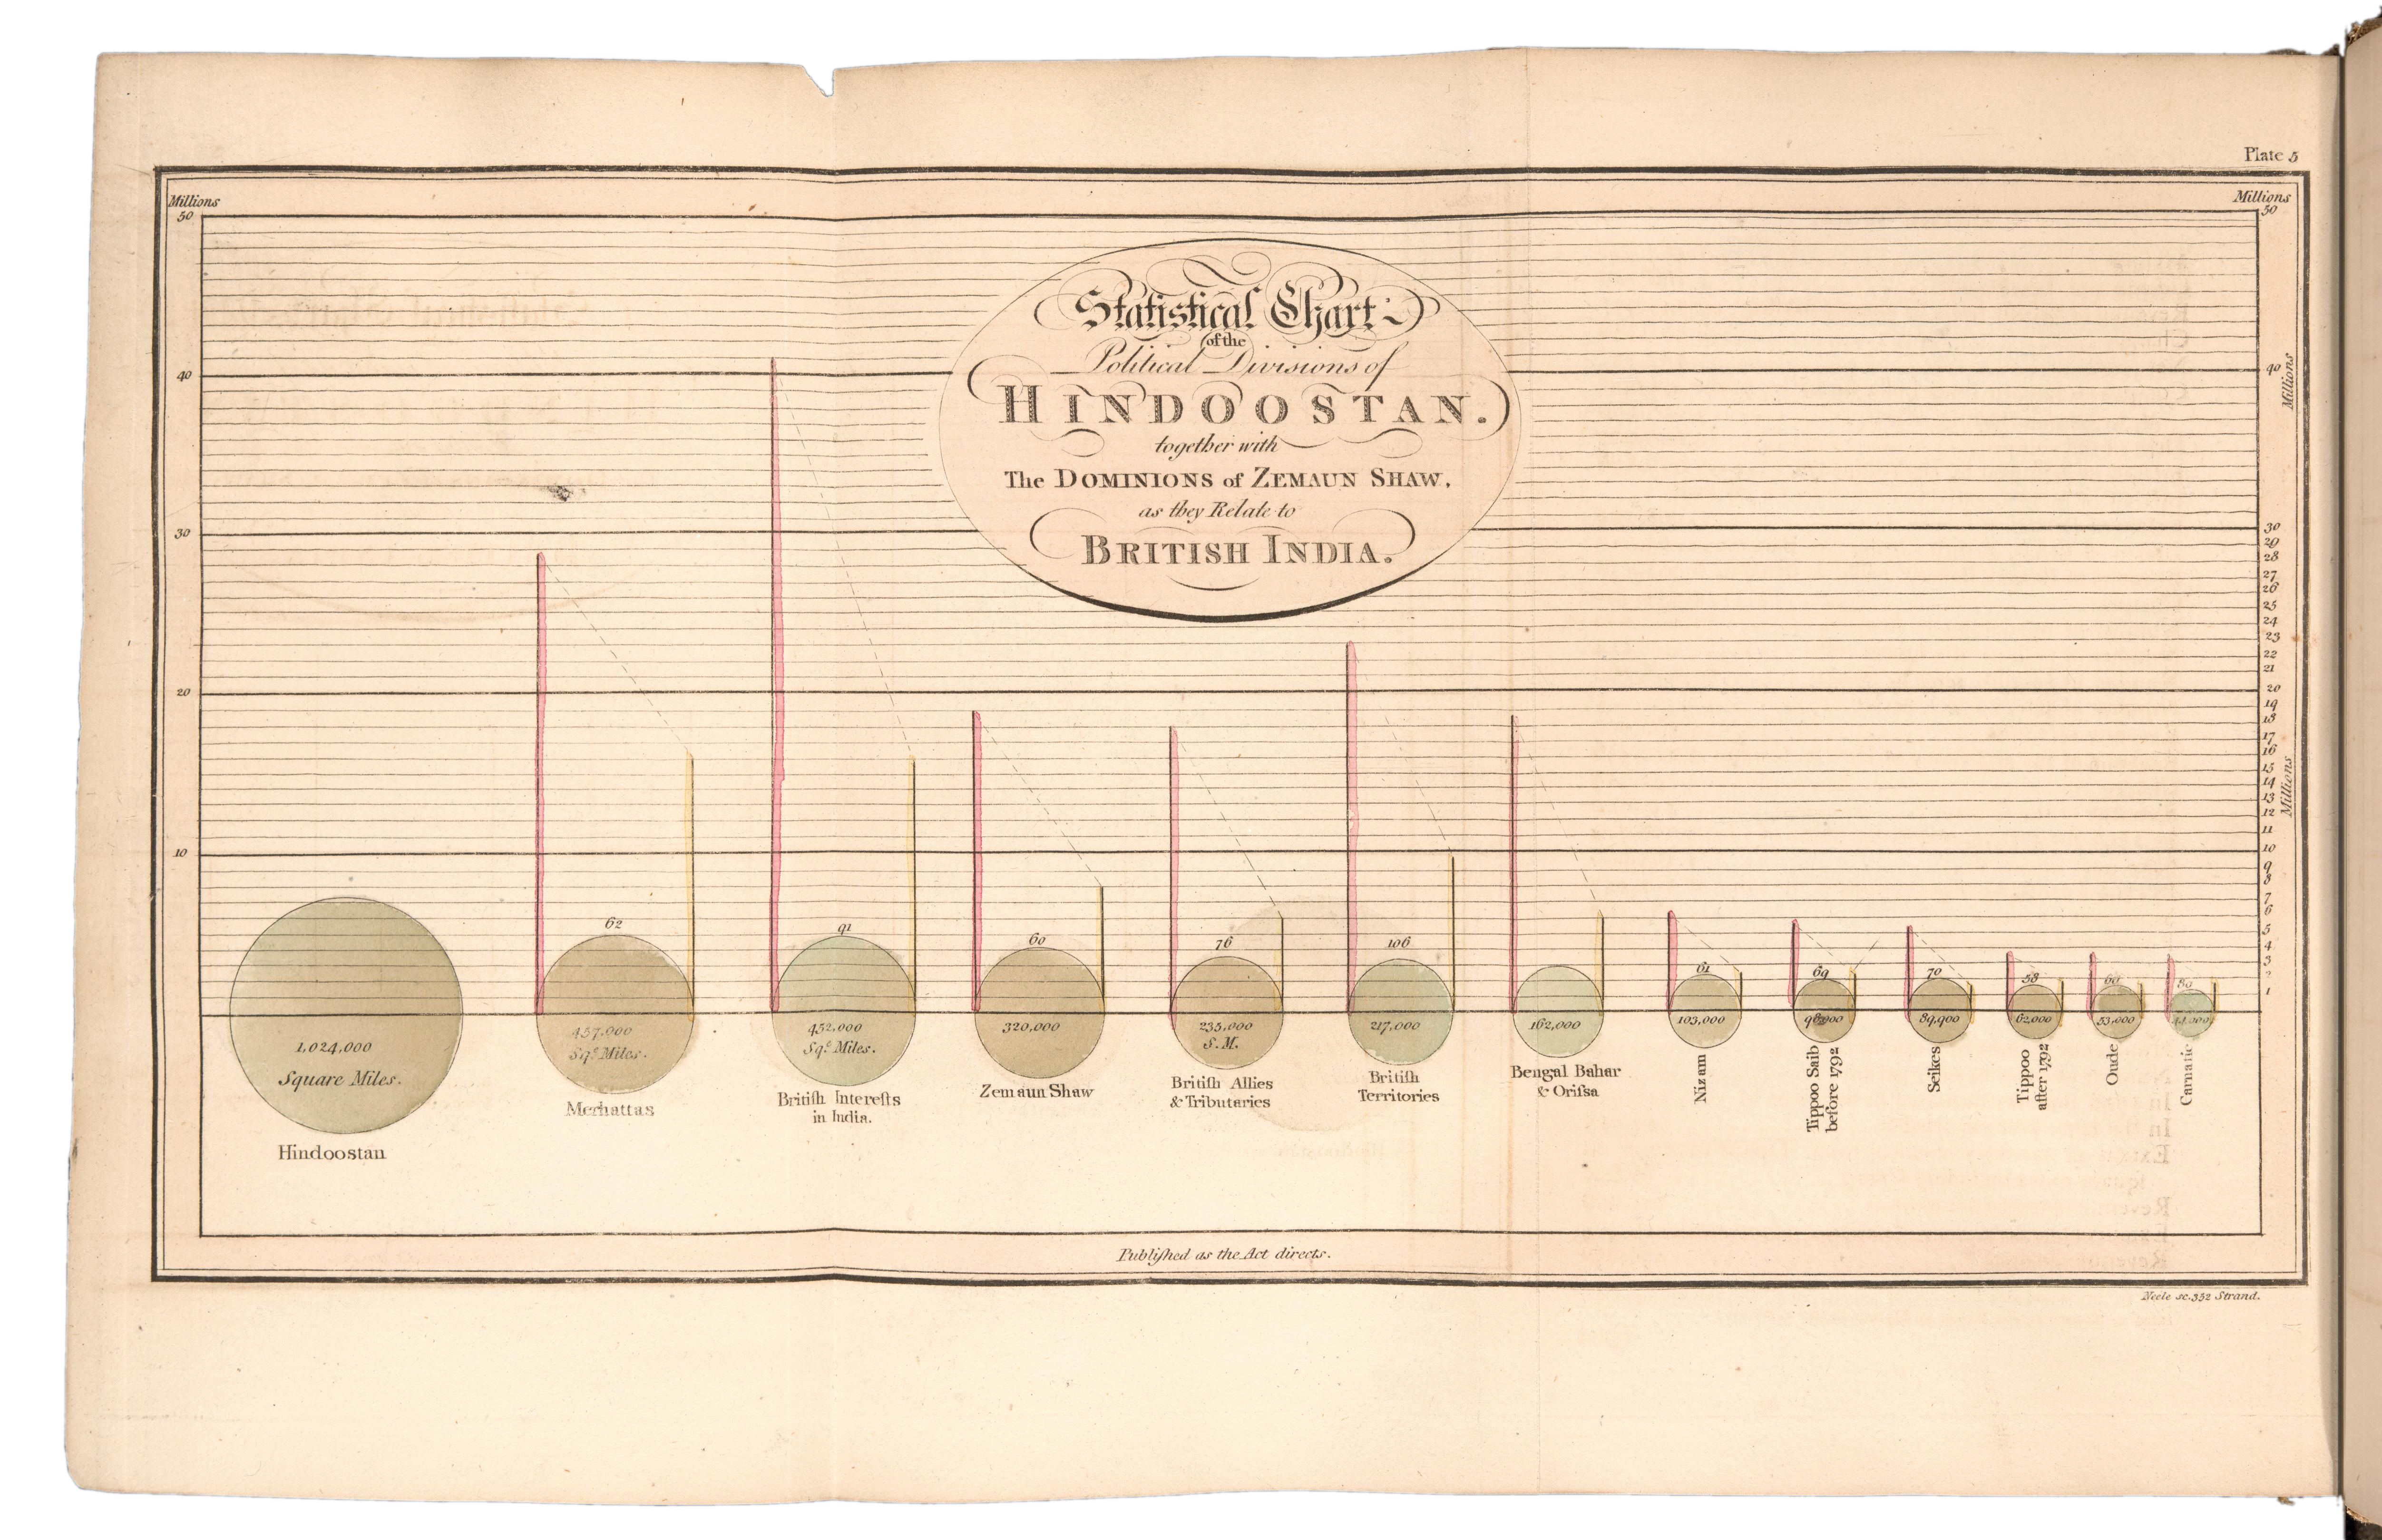 Plate 5
Millions
Millions
50
50
Statistical Chart
of the
Political Divisions of
HINDOOSTAN.
together with
The DOMINIONS of ZEMAUN SHAW,
as they Relate to
BRITISH INDIA.
40
30
20
10
40
Millions
30
29
28
27
26
25
24
23
22
21
20
19
18
17
16
15
14
13
12
11
10
9
8
7
6
5
4
3
2
1
Millions
62
91
60
76
106
61
69
70
58
60
1,024,000
Square Miles.
Hindoostan
457,000
Sqe. Miles.
Merhattas
452,000
Sqe. Miles.
Britiſh Intereſts
in India.
320,000
Zemaun Shaw
235,000
S.M.
Britiſh Allies
& Tributaries
217,000
Britiſh
Territories
162,000
Bengal Bahar
& Oriſsa
103,000
Nizam
Tippoo Saib
before 1792
89,900
Seikes
62,000
Tippoo
after 1792
53,000
Oude
Carnatic
Publiſhed as the Act directs.
Neele sc. 352 Strand.